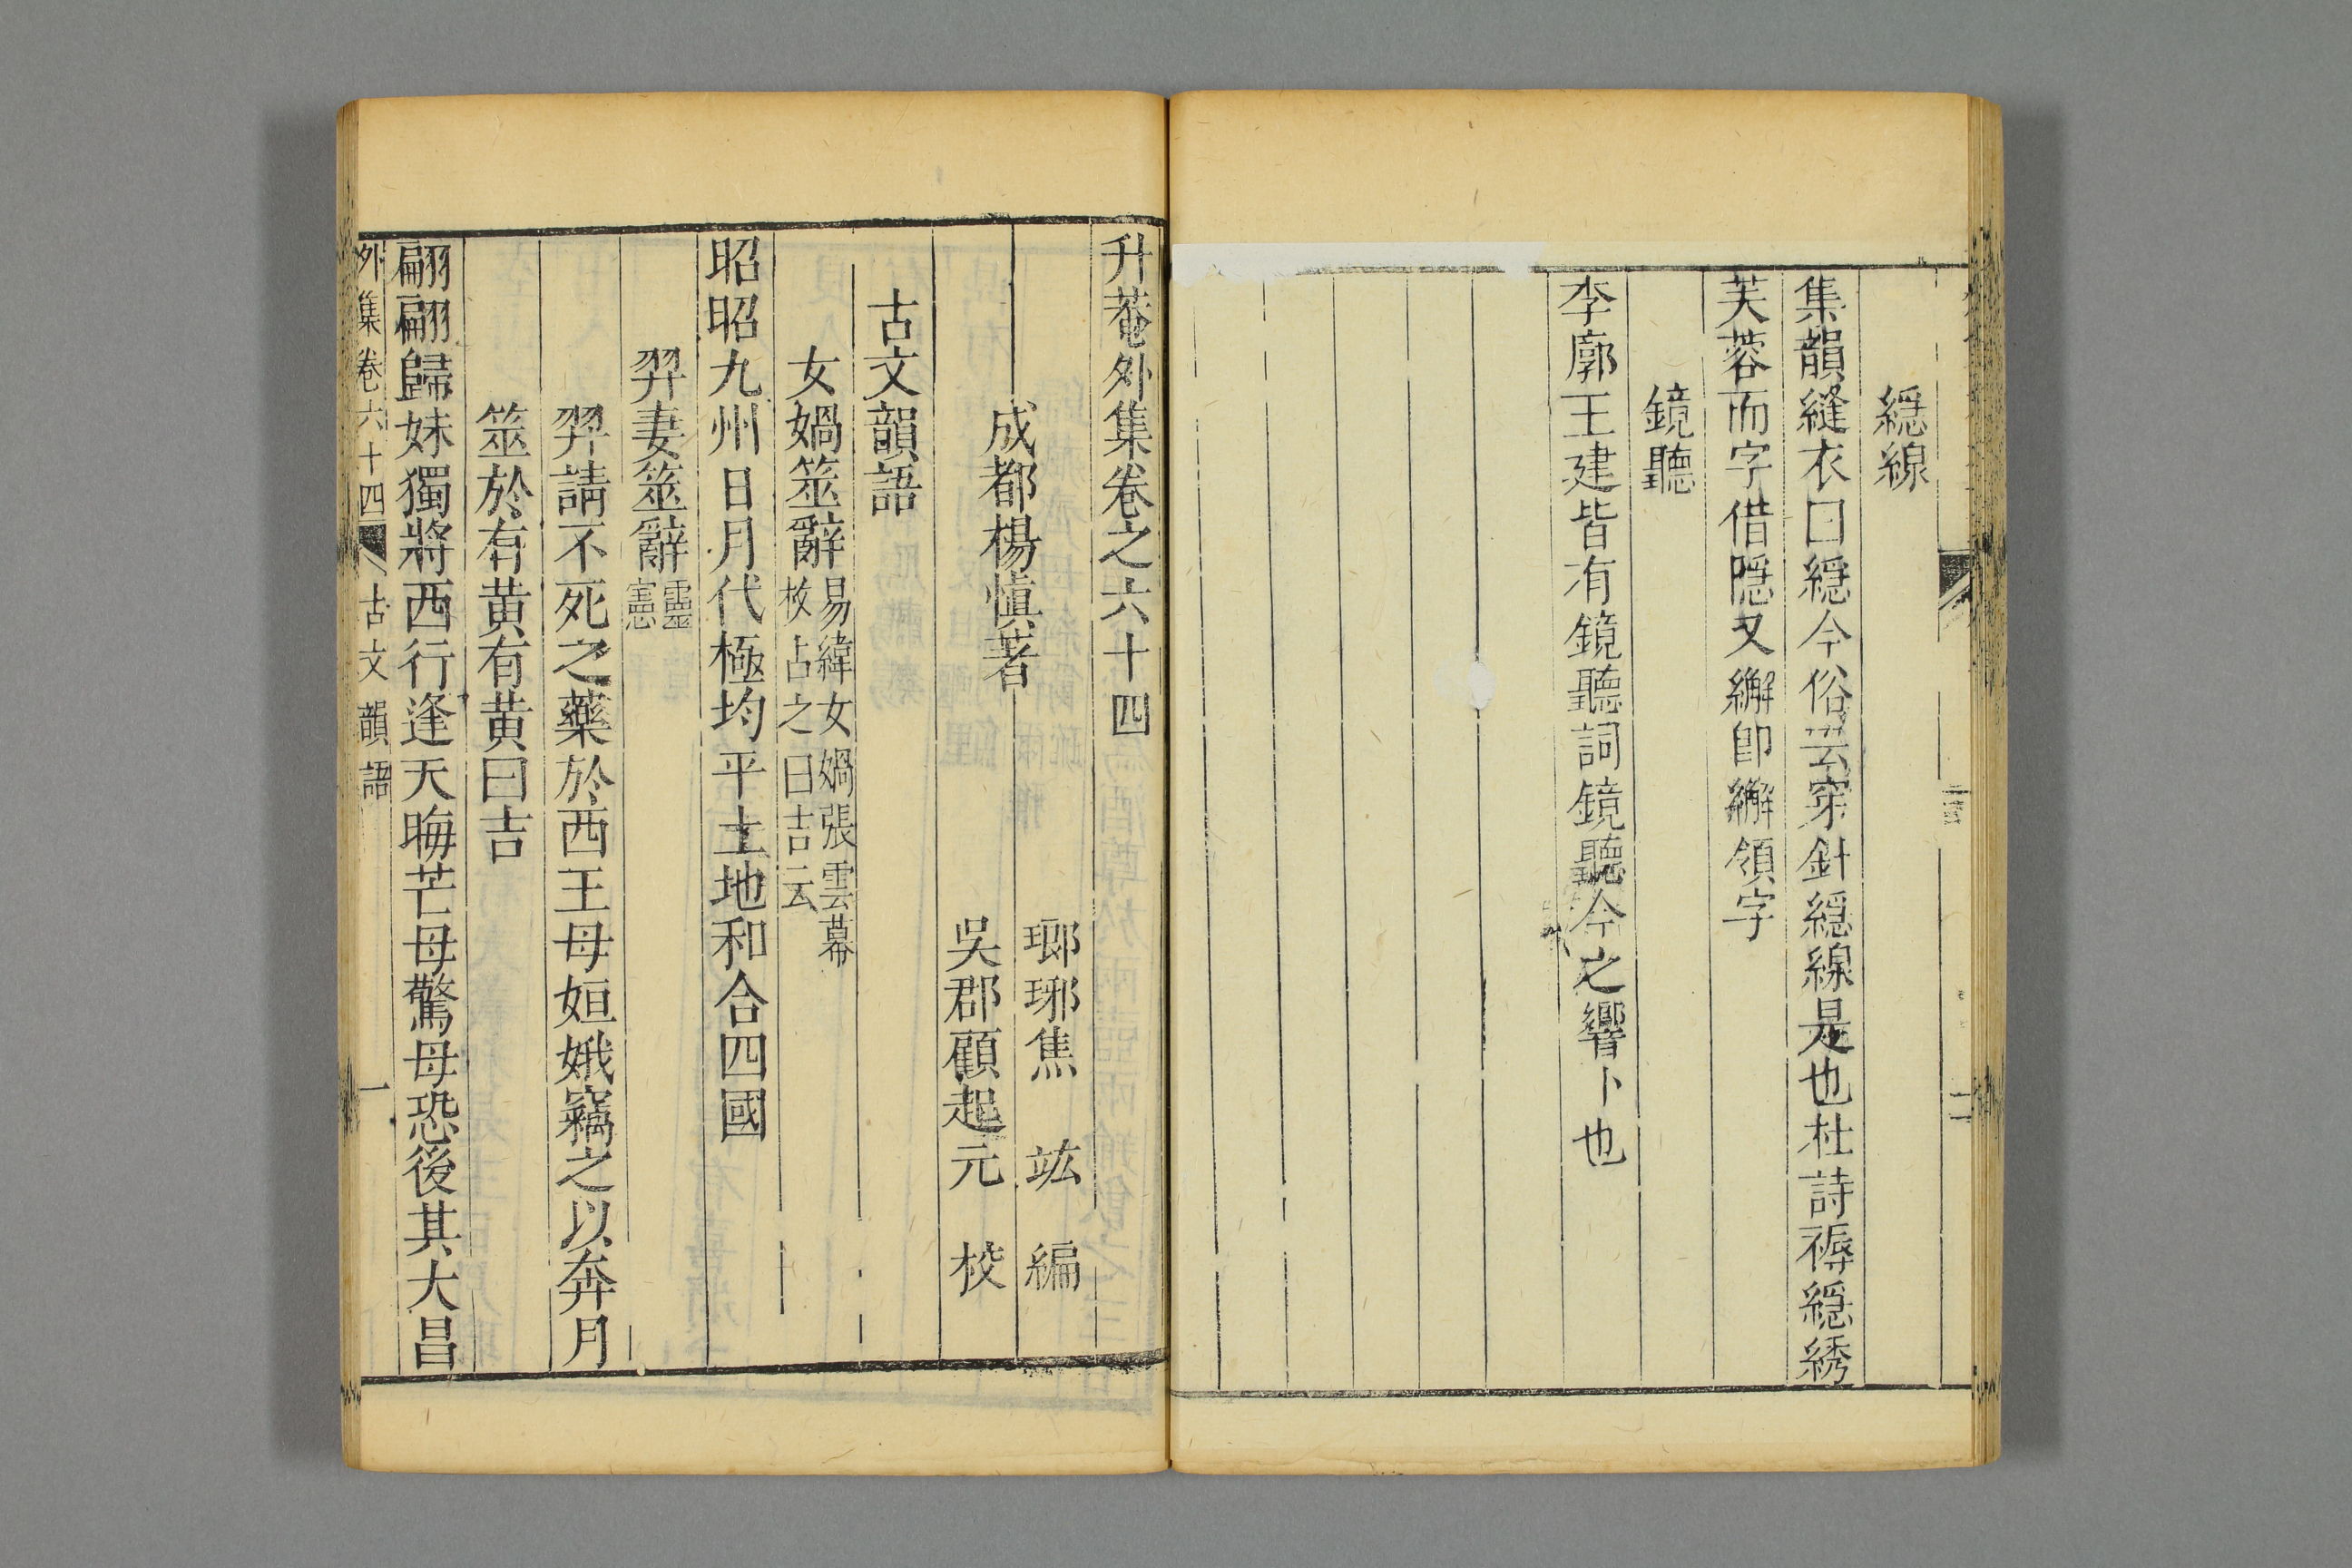 繱線
集韻縫衣曰繱今俗云穿針繱線是也杜詩褥繱綉
芙蓉而字借隱又繲卽繲領字
鏡聽
李廓王建皆有鏡聽詞鏡聽今之響卜也
升菴外集卷之六十四
瑯琊焦竑編
成都楊慎著
吳郡顧起元校
古文韻語
女媧筮辭
易緯女媧張雲幕
枚占之曰吉云
昭昭九州日月代極均平土地和合四國
羿妻筮辭
靈
憲
羿請不死之藥於西王母姮娥竊之以奔月
筮於有黃有黃曰吉
翩翩歸妹獨將西行逢天晦芒母驚母恐後其大昌
外集卷六十四 古文韻語 一